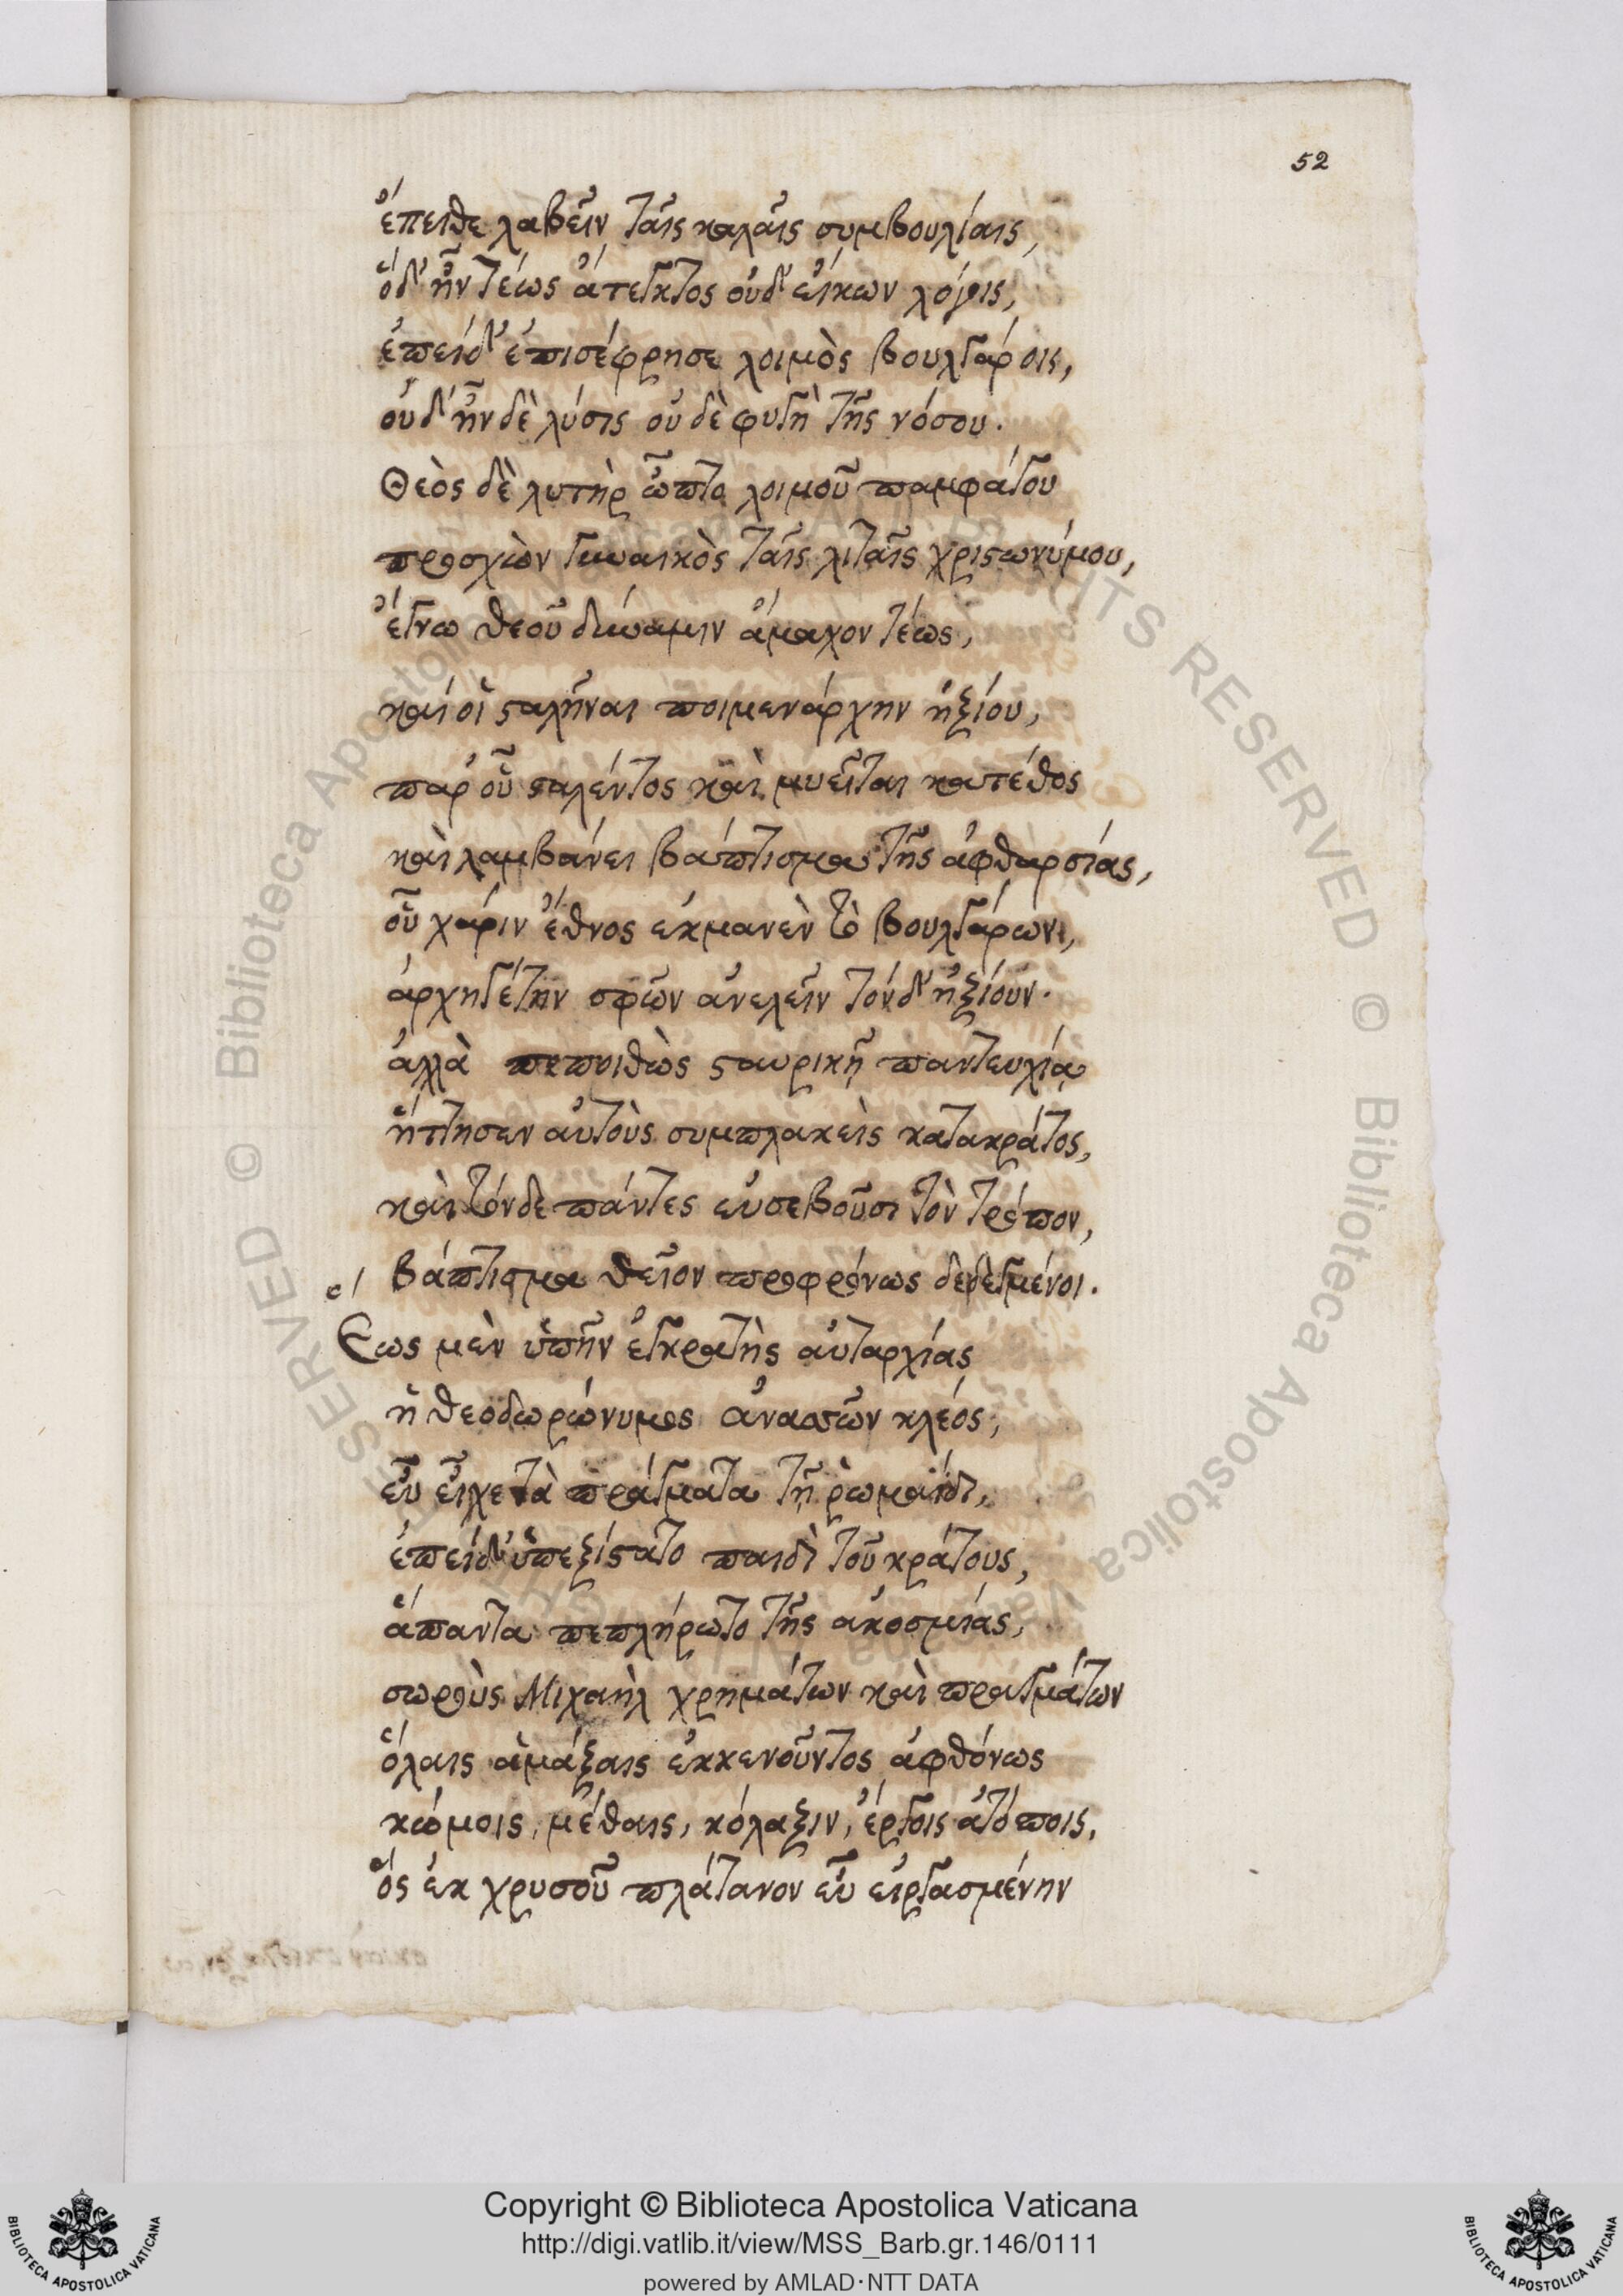 52
ἔπειθε λαβεῖν ταῖς καλαῖς συμβουλίαις,
ὅδ' ἦν τέως ἄτεγκτος οὐδ' εἴκων λόγοις,
ἐπεὶ δ' ἐπισέφρησε λοιμὸς βουλγάροις,
οὐδ' ἦν δὲ λύσις οὐδὲ φυγὴ τῆς νόσου.
Θεὸς δὲ λυτὴρ ὦπτο λοιμοῦ παμφάγου
προσχὼν γυναικὸς ταῖς λιταῖς χριστωνύμου,
ἔγνω θεοῦ δύναμιν ἄμαχον τέως,
καί οἱ σταλῆναι ποιμενάρχην ἠξίου,
παρ' οὗ σταλέντος καὶ μυεῖται κατέθος
καὶ λαμβάνει βάπτισμα τῆς ἀφθαρσίας,
οὗ χάριν ἔθνος ἐκμανὲν τὸ βουλγάρων,
ἀρχηγέτην σφῶν ἀνελεῖν τόνδ' ἠξίουν.
ἀλλὰ πεποιθὼς σταυρικῇ παντευχίᾳ
ἥττησεν αὐτοὺς συμπλακεὶς κατακράτος,
καὶ τόνδε πάντες εὐσεβοῦσι τὸν τρόπον,
βάπτισμα θεῖον προφρόνως δεδεγμένοι.
Ἕως μὲν ὑπῆν ἐγκρατὴς αὐταρχίας
ἡ θεοδωρώνυμος ἀνασσῶν κλέος,
εὖ εἶχε τὰ πράγματα τῇ ῥωμαΐδι,
ἐπεὶ δ' ὑπεξίστατο παιδὶ τοῦ κράτους,
ἅπαντα πεπλήρωτο τῆς ἀκοσμίας,
σωροὺς Μιχαὴλ χρημάτων καὶ πραγμάτων
ὅλαις ἁμάξαις ἐκκενοῦντος ἀφθόνως
κώμοις, μέθαις, κόλαξιν, ἔργοις ἀτόποις,
ὃς ἐκ χρυσοῦ πλάτανον εὖ εἰργασμένην
Copyright © Biblioteca Apostolica Vaticana
http://digi.vatlib.it/view/MSS_Barb.gr.146/0111
powered by AMLAD·NTT DATA
BIBLIOTECA APOSTOLICA VATICANA
BIBLIOTECA APOSTOLICA VATICANA